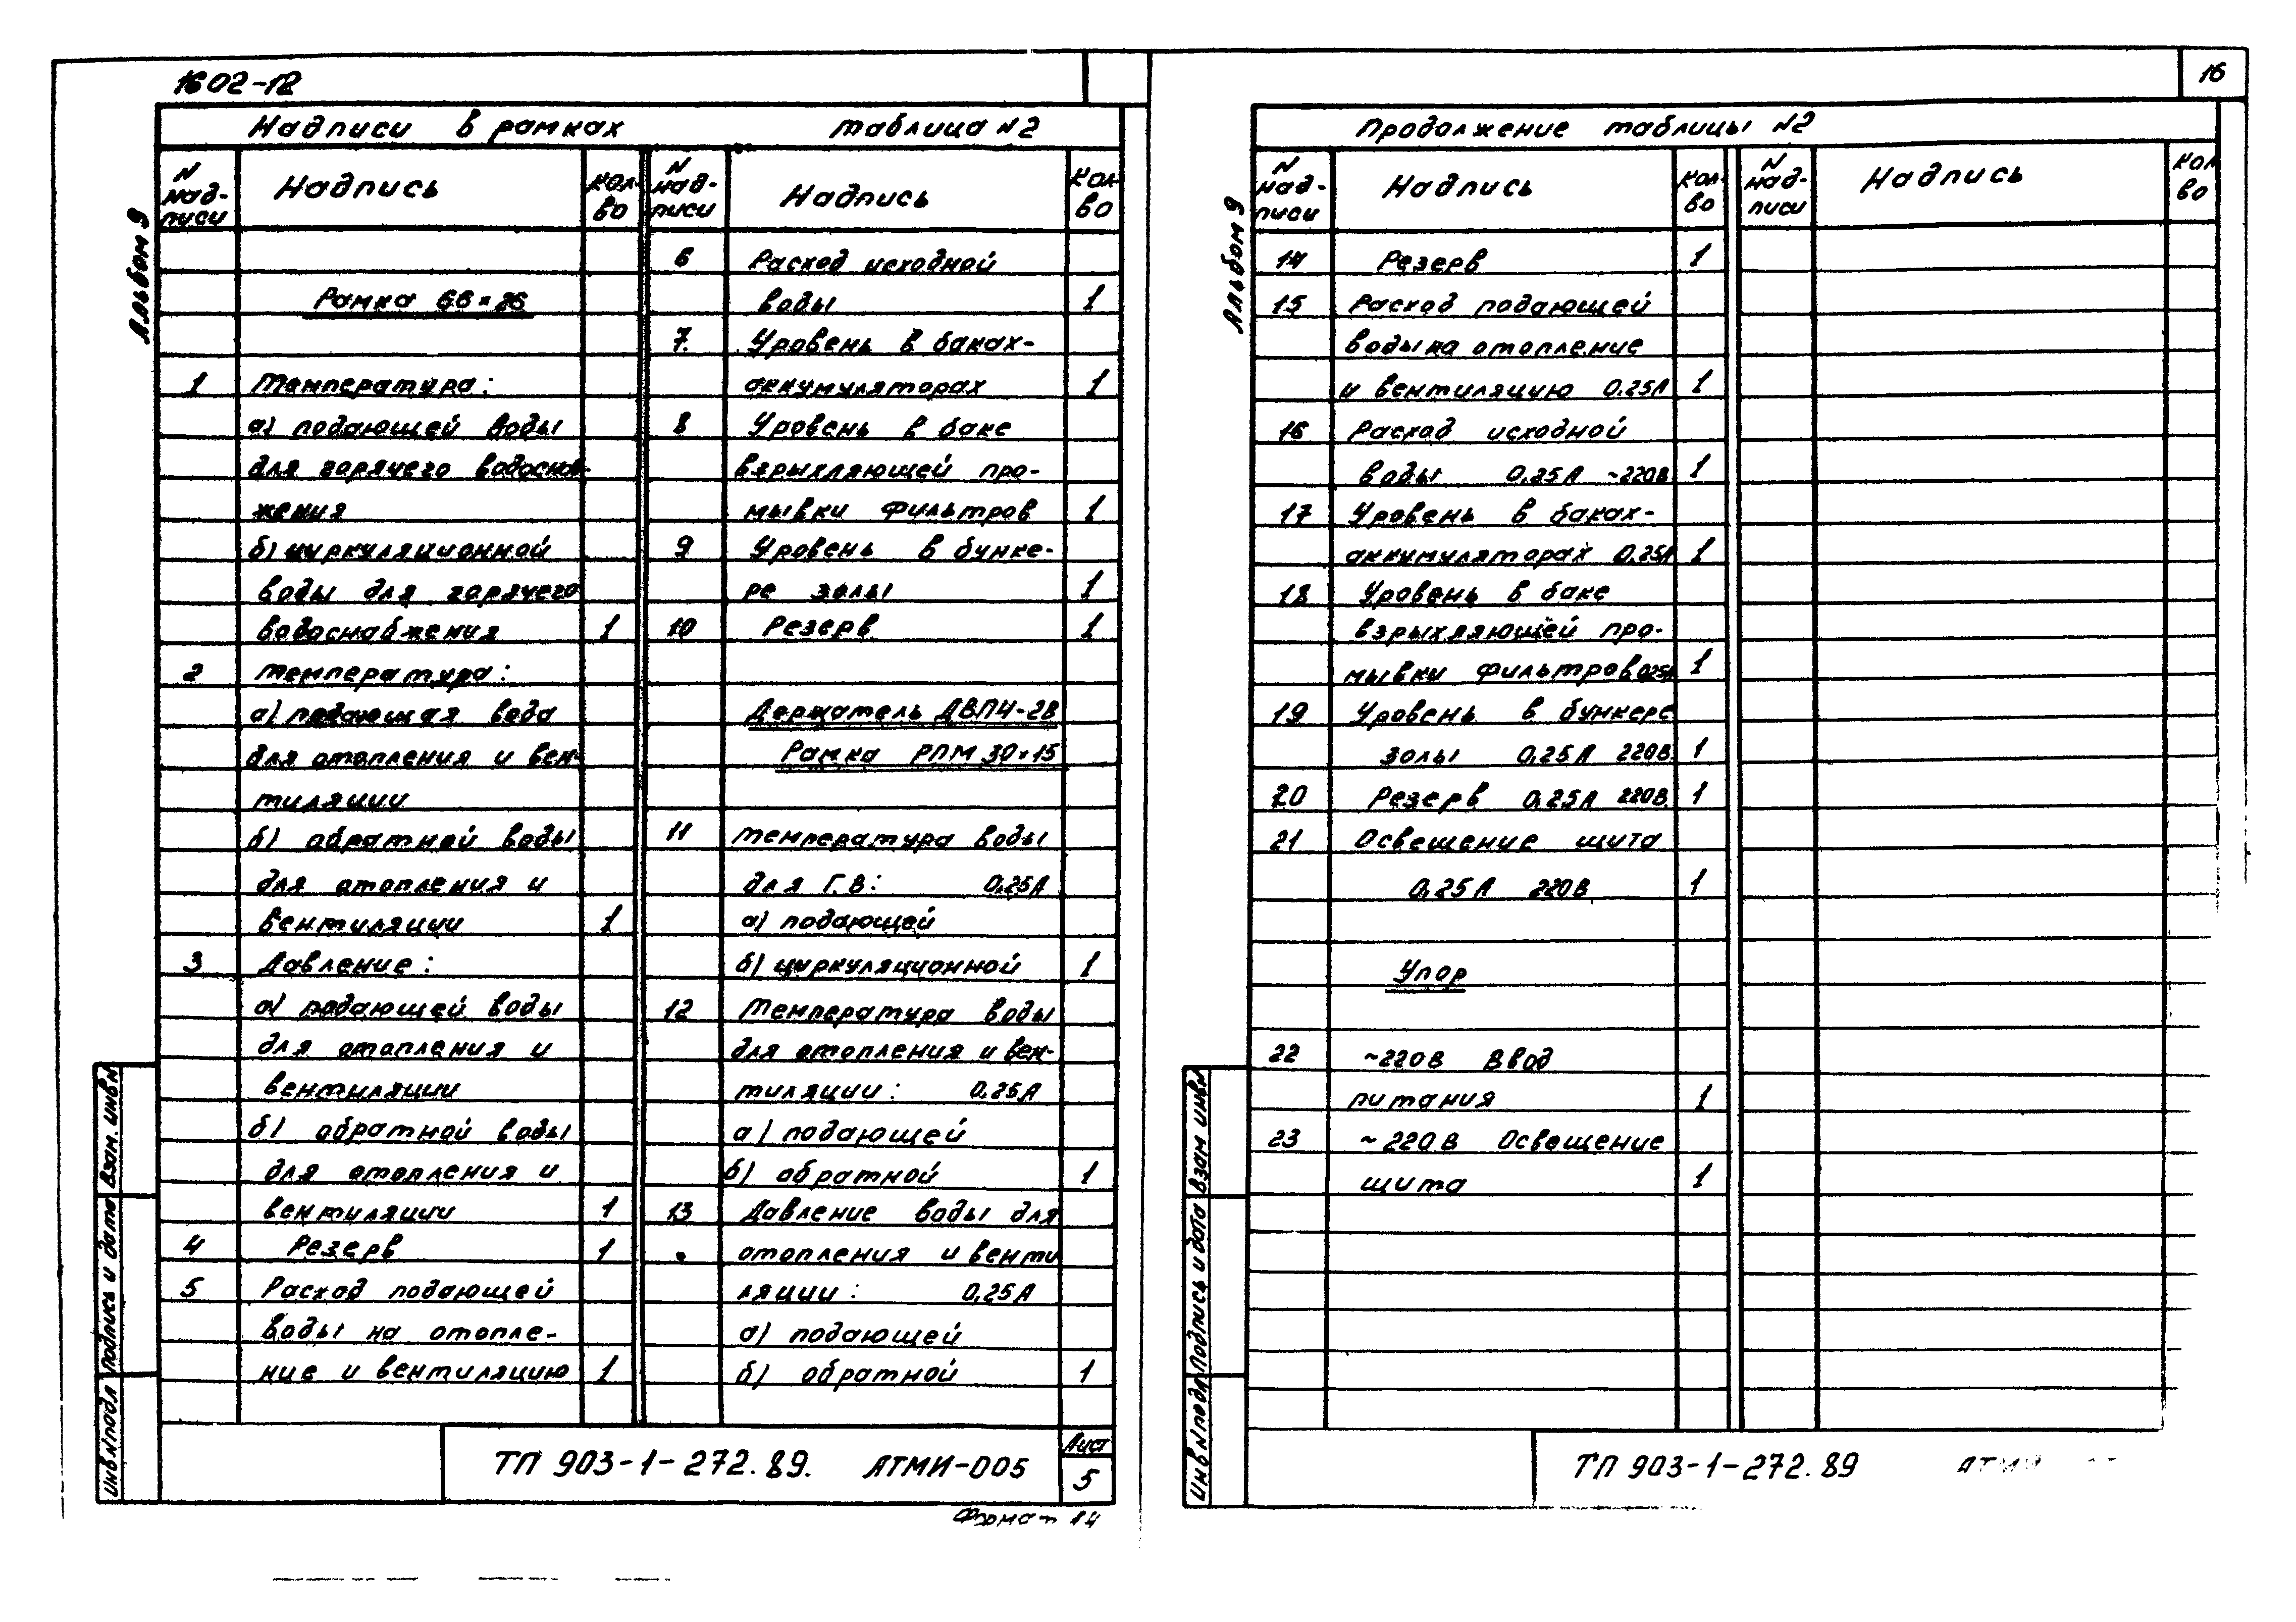 1602-12
16
Альбом 9
Надписи в рамках таблица N2
N надписи Надпись Кол-во
N надписи Надпись Кол-во
Рамка 66×26
1 Температура:
а) подающей воды
для горячего водоснаб-
жения
б) циркуляционной
воды для горячего
водоснабжения 1
2 Температура:
а) подающая вода
для отопления и вен-
тиляции
б) обратной воды
для отопления и
вентиляции 1
3 Давление:
а) подающей воды
для отопления и
вентиляции
б) обратной воды
для отопления и
вентиляции 1
4 Резерв 1
5 Расход подающей
воды на отопле-
ние и вентиляцию 1
6 Расход исходной
воды 1
7. Уровень в баках-
аккумуляторах 1
8 Уровень в баке
взрыхляющей про-
мывки фильтров 1
9 Уровень в бунке-
ре золы 1
10 Резерв 1
Держатель ДВПЧ-2В
Рамка РПМ 30×15
11 Температура воды
для Г.В: 0,25А
а) подающей
б) циркуляционной 1
12 Температура воды
для отопления и вен-
тиляции: 0,25А
а) подающей
б) обратной 1
13 Давление воды для
отопления и венти
ляции: 0,25А
а) подающей
б) обратной 1
Инв.N подл Подпись и дата Взам. инв.N
ТП 903-1-272.89. АТМИ-005
Лист
5
Формат 14
Альбом 9
Продолжение таблицы N2
N надписи Надпись Кол-во
N надписи Надпись Кол во
14 Резерв 1
15 Расход подающей
воды на отопление
и вентиляцию 0.25А 1
16 Расход исходной
воды 0,25А ~220В 1
17 Уровень в баках-
аккумуляторах 0,25А 1
18 Уровень в баке
взрыхляющей про-
мывки фильтров 0,25А 1
19 Уровень в бункере
золы 0,25А 220В 1
20 Резерв 0,25А 220В 1
21 Освещение щита
0,25А 220В 1
Упор
22 ~220В Ввод
питания 1
23 ~220В Освещение
щита 1
Инв.N подл Подпись и дата Взам инв.N
ТП 903-1-272.89 АТМИ